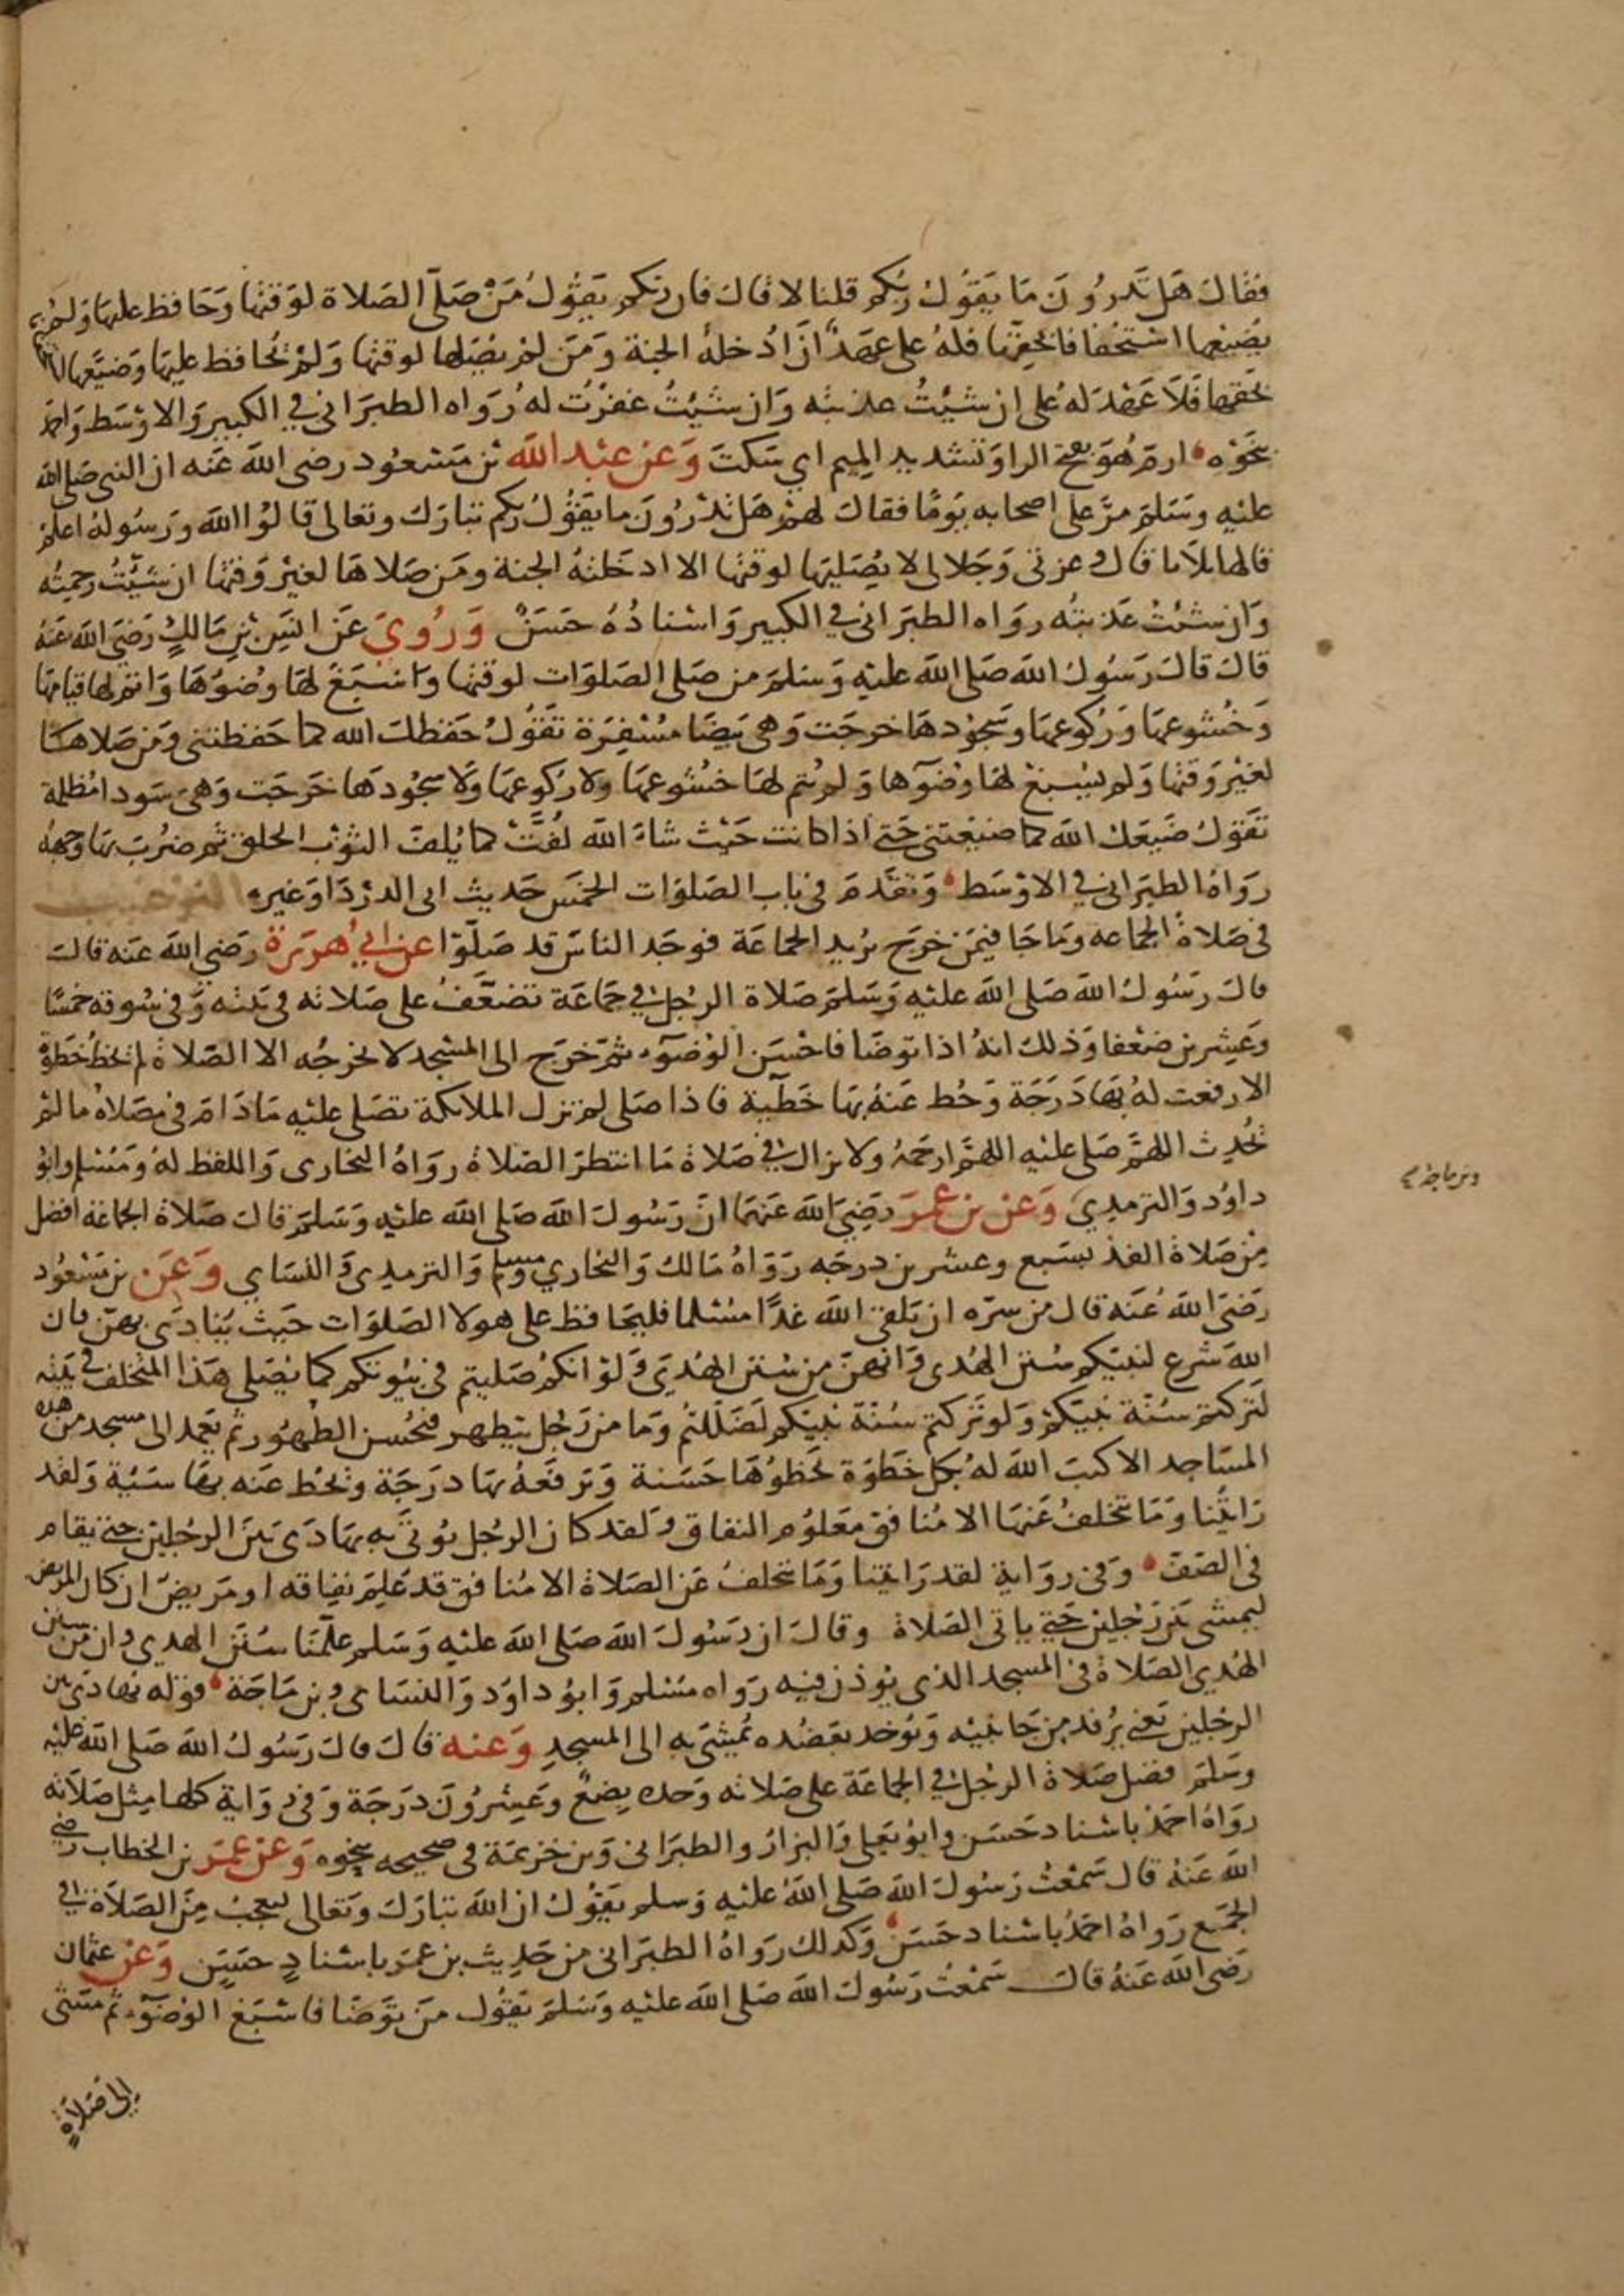 فقال هل تدرون ما يقول ربكم قلنا لا قال فان ربكم يقول من صلى الصلاة لوقتها وحافظ عليها ولم
يضيعها استخفافا بحقها فله علي عهد ان ادخله الجنة ومن لم يصلها لوقتها ولم يحافظ عليها وضيعها استخفافا
بحقها فلا عهد له علي ان شيت عذبته وان شيت غفرت له رواه الطبراني في الكبير والاوسط واحمد
بنحوه ارم هو بفتح الرا وتشديد الميم اي سكت وعن عبد الله بن مسعود رضي الله عنه ان النبي صلى الله
عليه وسلم مر على اصحابه يوما فقال لهم هل تدرون ما يقول ربكم تبارك وتعالى قالوا الله ورسوله اعلم
قالها ثلاثا قال وعزتي وجلالي لا يصليها لوقتها الا ادخلته الجنة ومن صلاها لغير وقتها ان شيت رحمته
وان شئت عذبته رواه الطبراني في الكبير واسناده حسن وروي عن انس بن مالك رضي الله عنه
قال قال رسول الله صلى الله عليه وسلم من صلى الصلوات لوقتها واسبغ لها وضوها واتم لها قيامها
وخشوعها وركوعها وسجودها خرجت وهي بيضا مسفرة تقول حفظك الله كما حفظتني ومن صلاها
لغير وقتها ولم يسبغ لها وضوها ولم يتم لها خشوعها ولا ركوعها ولا سجودها خرجت وهي سودا مظلمة
تقول ضيعك الله كما ضيعتني حتى اذا كانت حيث شاء الله لفت كما يلف الثوب الخلق ثم ضرب بها وجهه
رواه الطبراني في الاوسط وتقدم في باب الصلوات الخمس حديث ابي الدردا وغيره الترغيب
في صلاة الجماعه وما جا فيمن خرج يريد الجماعة فوجد الناس قد صلوا عن ابي هريرة رضي الله عنه قال
قال رسول الله صلى الله عليه وسلم صلاة الرجل في جماعة تضعف على صلاته في بيته وفي سوقه خمسا
وعشرين ضعفا وذلك انه اذا توضا فاحسن الوضوء ثم خرج الى المسجد لا يخرجه الا الصلاة لم يخط خطوة
الا رفعت له بها درجة وحط عنه بها خطية فاذا صلى لم تزل الملائكة تصلي عليه ما دام في مصلاه ما لم
يحدث اللهم صل عليه اللهم ارحمه ولا يزال في صلاة ما انتظر الصلاة رواه البخاري واللفظ له ومسلم وابو
داود والترمذي وعن بن عمر رضي الله عنهما ان رسول الله صلى الله عليه وسلم قال صلاة الجماعة افضل
وبن ماجه
من صلاة الفذ بسبع وعشرين درجه رواه مالك والبخاري ومسلم والترمذي والنساي وعن بن مسعود
رضي الله عنه قال من سره ان يلقى الله غدا مسلما فليحافظ على هولا الصلوات حيث ينادى بهن فان
الله شرع لنبيكم سنن الهدى وانهن من سنن الهدى ولو انكم صليتم في بيوتكم كما يصلي هذا المتخلف في بيته
لتركتم سنة نبيكم ولو تركتم سنة نبيكم لضللتم وما من رجل يتطهر فيحسن الطهور ثم يعمد الى مسجد من هذه
المساجد الا كتب الله له بكل خطوة يخطوها حسنة ويرفعه بها درجة ويحط عنه بها سيئة ولقد
رايتنا وما يتخلف عنها الا منافق معلوم النفاق ولقد كان الرجل يوتى به يهادى بين الرجلين حتى يقام
في الصف وفي رواية لقد رايتنا وما يتخلف عن الصلاة الا منافق قد علم نفاقه او مريض ان كان المريض
ليمشي بين رجلين حتى ياتي الصلاة وقال ان رسول الله صلى الله عليه وسلم علمنا سنن الهدى وان من سنن
الهدي الصلاة في المسجد الذي يوذن فيه رواه مسلم وابو داود والنساي وبن ماجة قوله يهادى بين
الرجلين يعني يرفد من جانبيه ويوخد بعضده يمشى به الى المسجد وعنه قال قال رسول الله صلى الله عليه
وسلم فضل صلاة الرجل في الجماعة على صلاته وحده بضع وعشرون درجة وفي رواية كلها مثل صلاته
رواه احمد باسناد حسن وابو يعلى والبزار والطبراني وبن خزيمة في صحيحه بنحوه وعن عمر بن الخطاب رضي
الله عنه قال سمعت رسول الله صلى الله عليه وسلم يقول ان الله تبارك وتعالى ليعجب من الصلاة في
الجمع رواه احمد باسناد حسن وكذلك رواه الطبراني من حديث بن عمر باسناد حسن وعن عثمان
رضي الله عنه قال سمعت رسول الله صلى الله عليه وسلم يقول من توضا فاسبغ الوضوء ثم مشى
الى صلاة